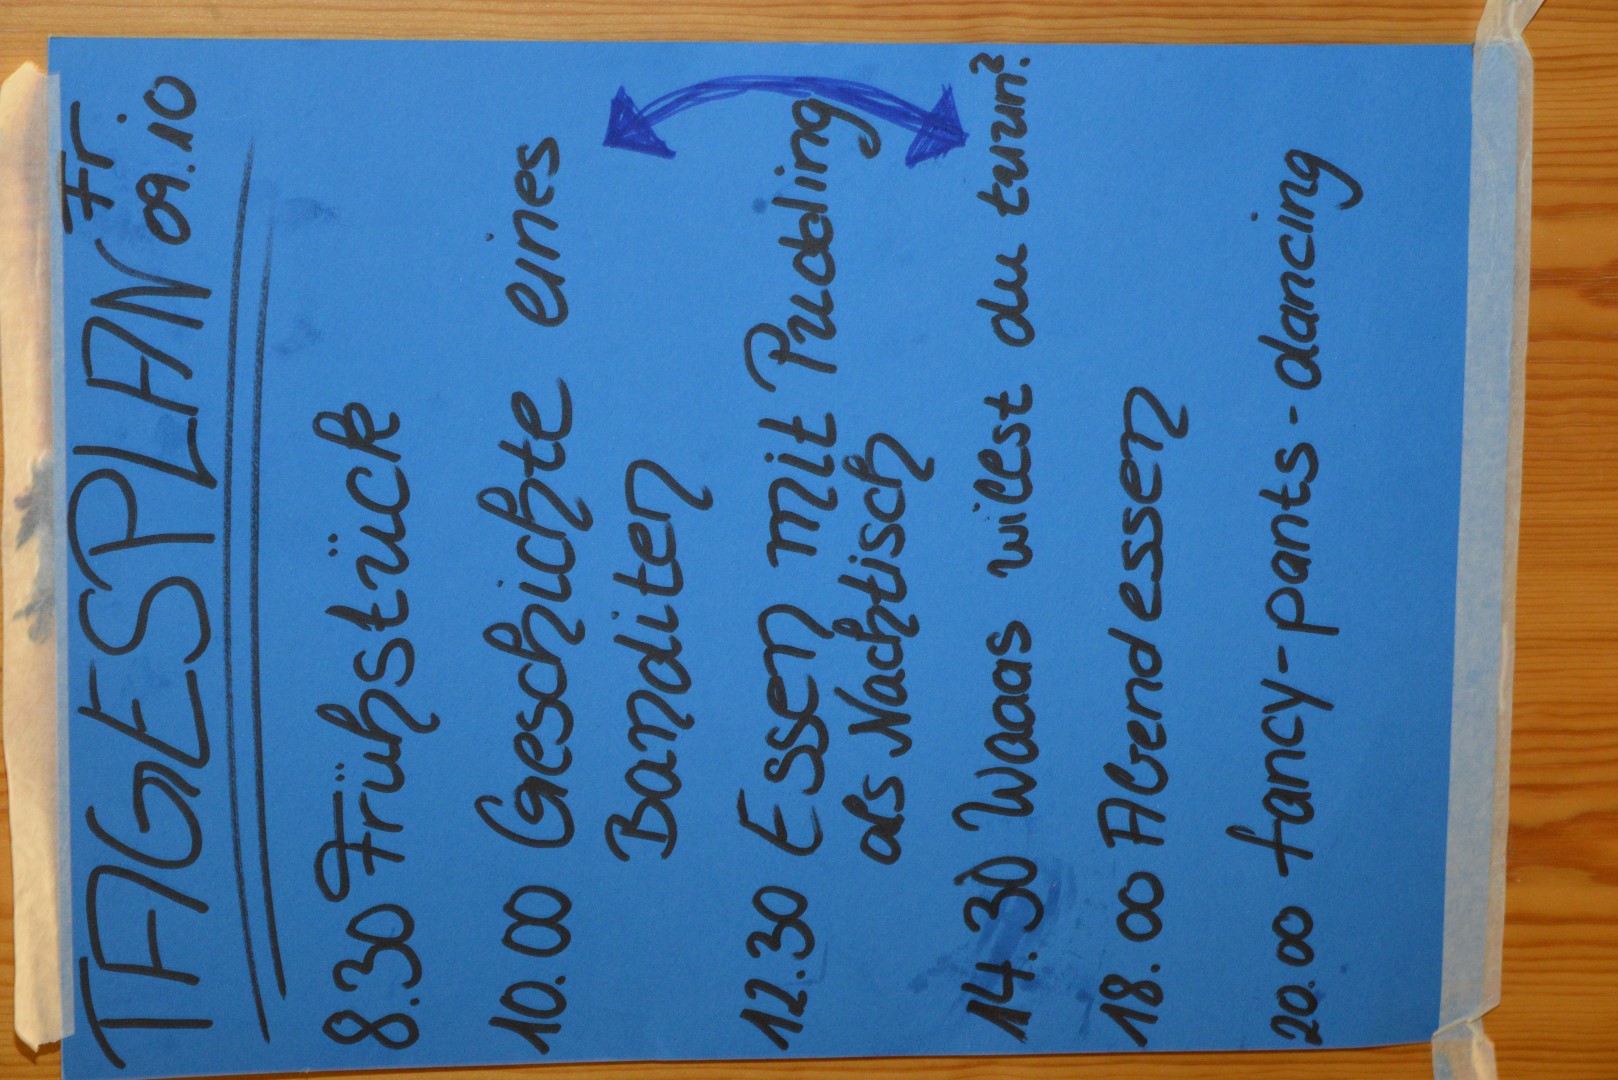 TAGESPLAN Fr. 09.10
8.30 Frühstück
10.00 Geschichte eines
Banditen
12.30 Essen mit Pudding
als Nachtisch
14.30 Waaas willst du tuuun?
18.00 Abendessen
20.00 fancy-pants-dancing